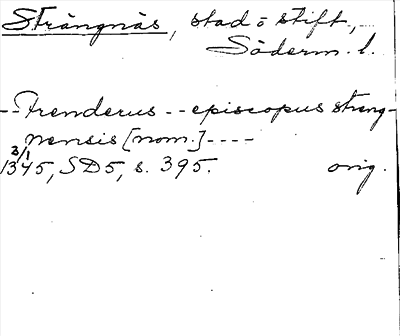 Strängnäs, stad o stift,
Söderm. l.
-- Frenderus -- episcopus streng-
nensis [nom.] ----
3/1
1345, SD5, s. 395. orig.